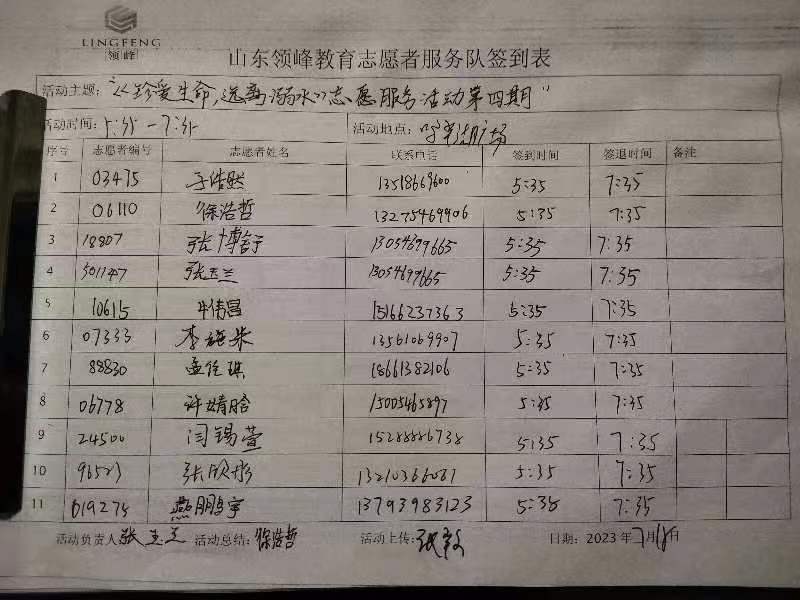 LINGFENG
领峰
山东领峰教育志愿者服务队签到表
活动主题:"《珍爱生命,远离溺水》志愿服务活动第四期"
活动时间:5:35-7:35 活动地点: 广场
序号 志愿者编号 志愿者姓名 联系电话 签到时间 签退时间 备注
1 03475 于浩然 13518669600 5:35 7:35
2 06110 徐浩哲 13275469906 5:35 7:35
3 18807 张博 13054699665 5:35 7:35
4 301147 张玉兰 13054699665 5:35 7:35
5 10615 牛倩昌 15166237363 5:35 7:35
6 07333 李 13561069907 5:35 7:35
7 88830 孟佳琪 18661382106 5:35 7:35
8 06778 许婧晗 15005465897 5:35 7:35
9 24500 闫锡萱 15288886738 5:35 7:35
10 96523 张欣彤 13210366081 5:35 7:35
11 019275 燕鹏宇 13793983123 5:35 7:35
活动负责人 张玉兰 活动总结: 徐浩哲 活动上传: 张 日期: 2023年7月18日